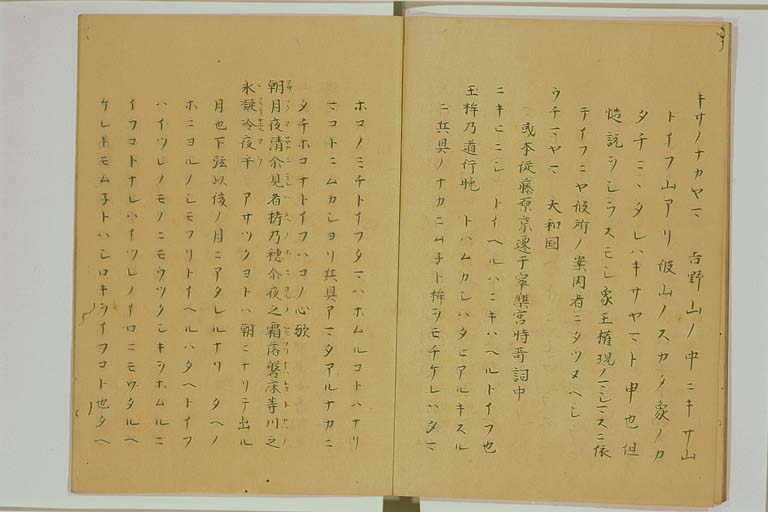 キサノナカヤマ 吉野山ノ中ニキサ山
トイフ山アリ彼山ノスカタ象ノカ
タチニヽタレハキサヤマト申也但
慥説シラスモシ象王権現ノマシマスニ依
テイフニヤ彼所ノ案内者ニタツヌヘシ
ウチマヤマ 大和国
或本従藤原京遷于寧樂宮時哥詞中
ニキヒニシ トイヘルハニキハヘルトイフ也
玉桙乃道行晩 トハムカシハタヒアルキスル
ニ兵具ノナカニムネト桙ヲモチケレハタマ
ホコノミチトイフタマハホムルコトハナリ
マコトニムカシヨリ兵具アマタアルナカニ
タチホコナトイフハコノ心歟
朝月夜清尒見者栲乃穂尒夜之霜落磐床等川之
氷凝冷夜乎 アサツクヨトハ朝ニナリテ出ル
月也下弦以後ノ月ニアタレルナリ タヘノ
ホニヨルノシモフリトイヘルハタヘトイフ
ハイツレノモノニモウツクシキヲホムルニ
イフコトナレハイツレノイロニモワタルヘ
ケレトモムネトハシロキヲイフコト也タヘ